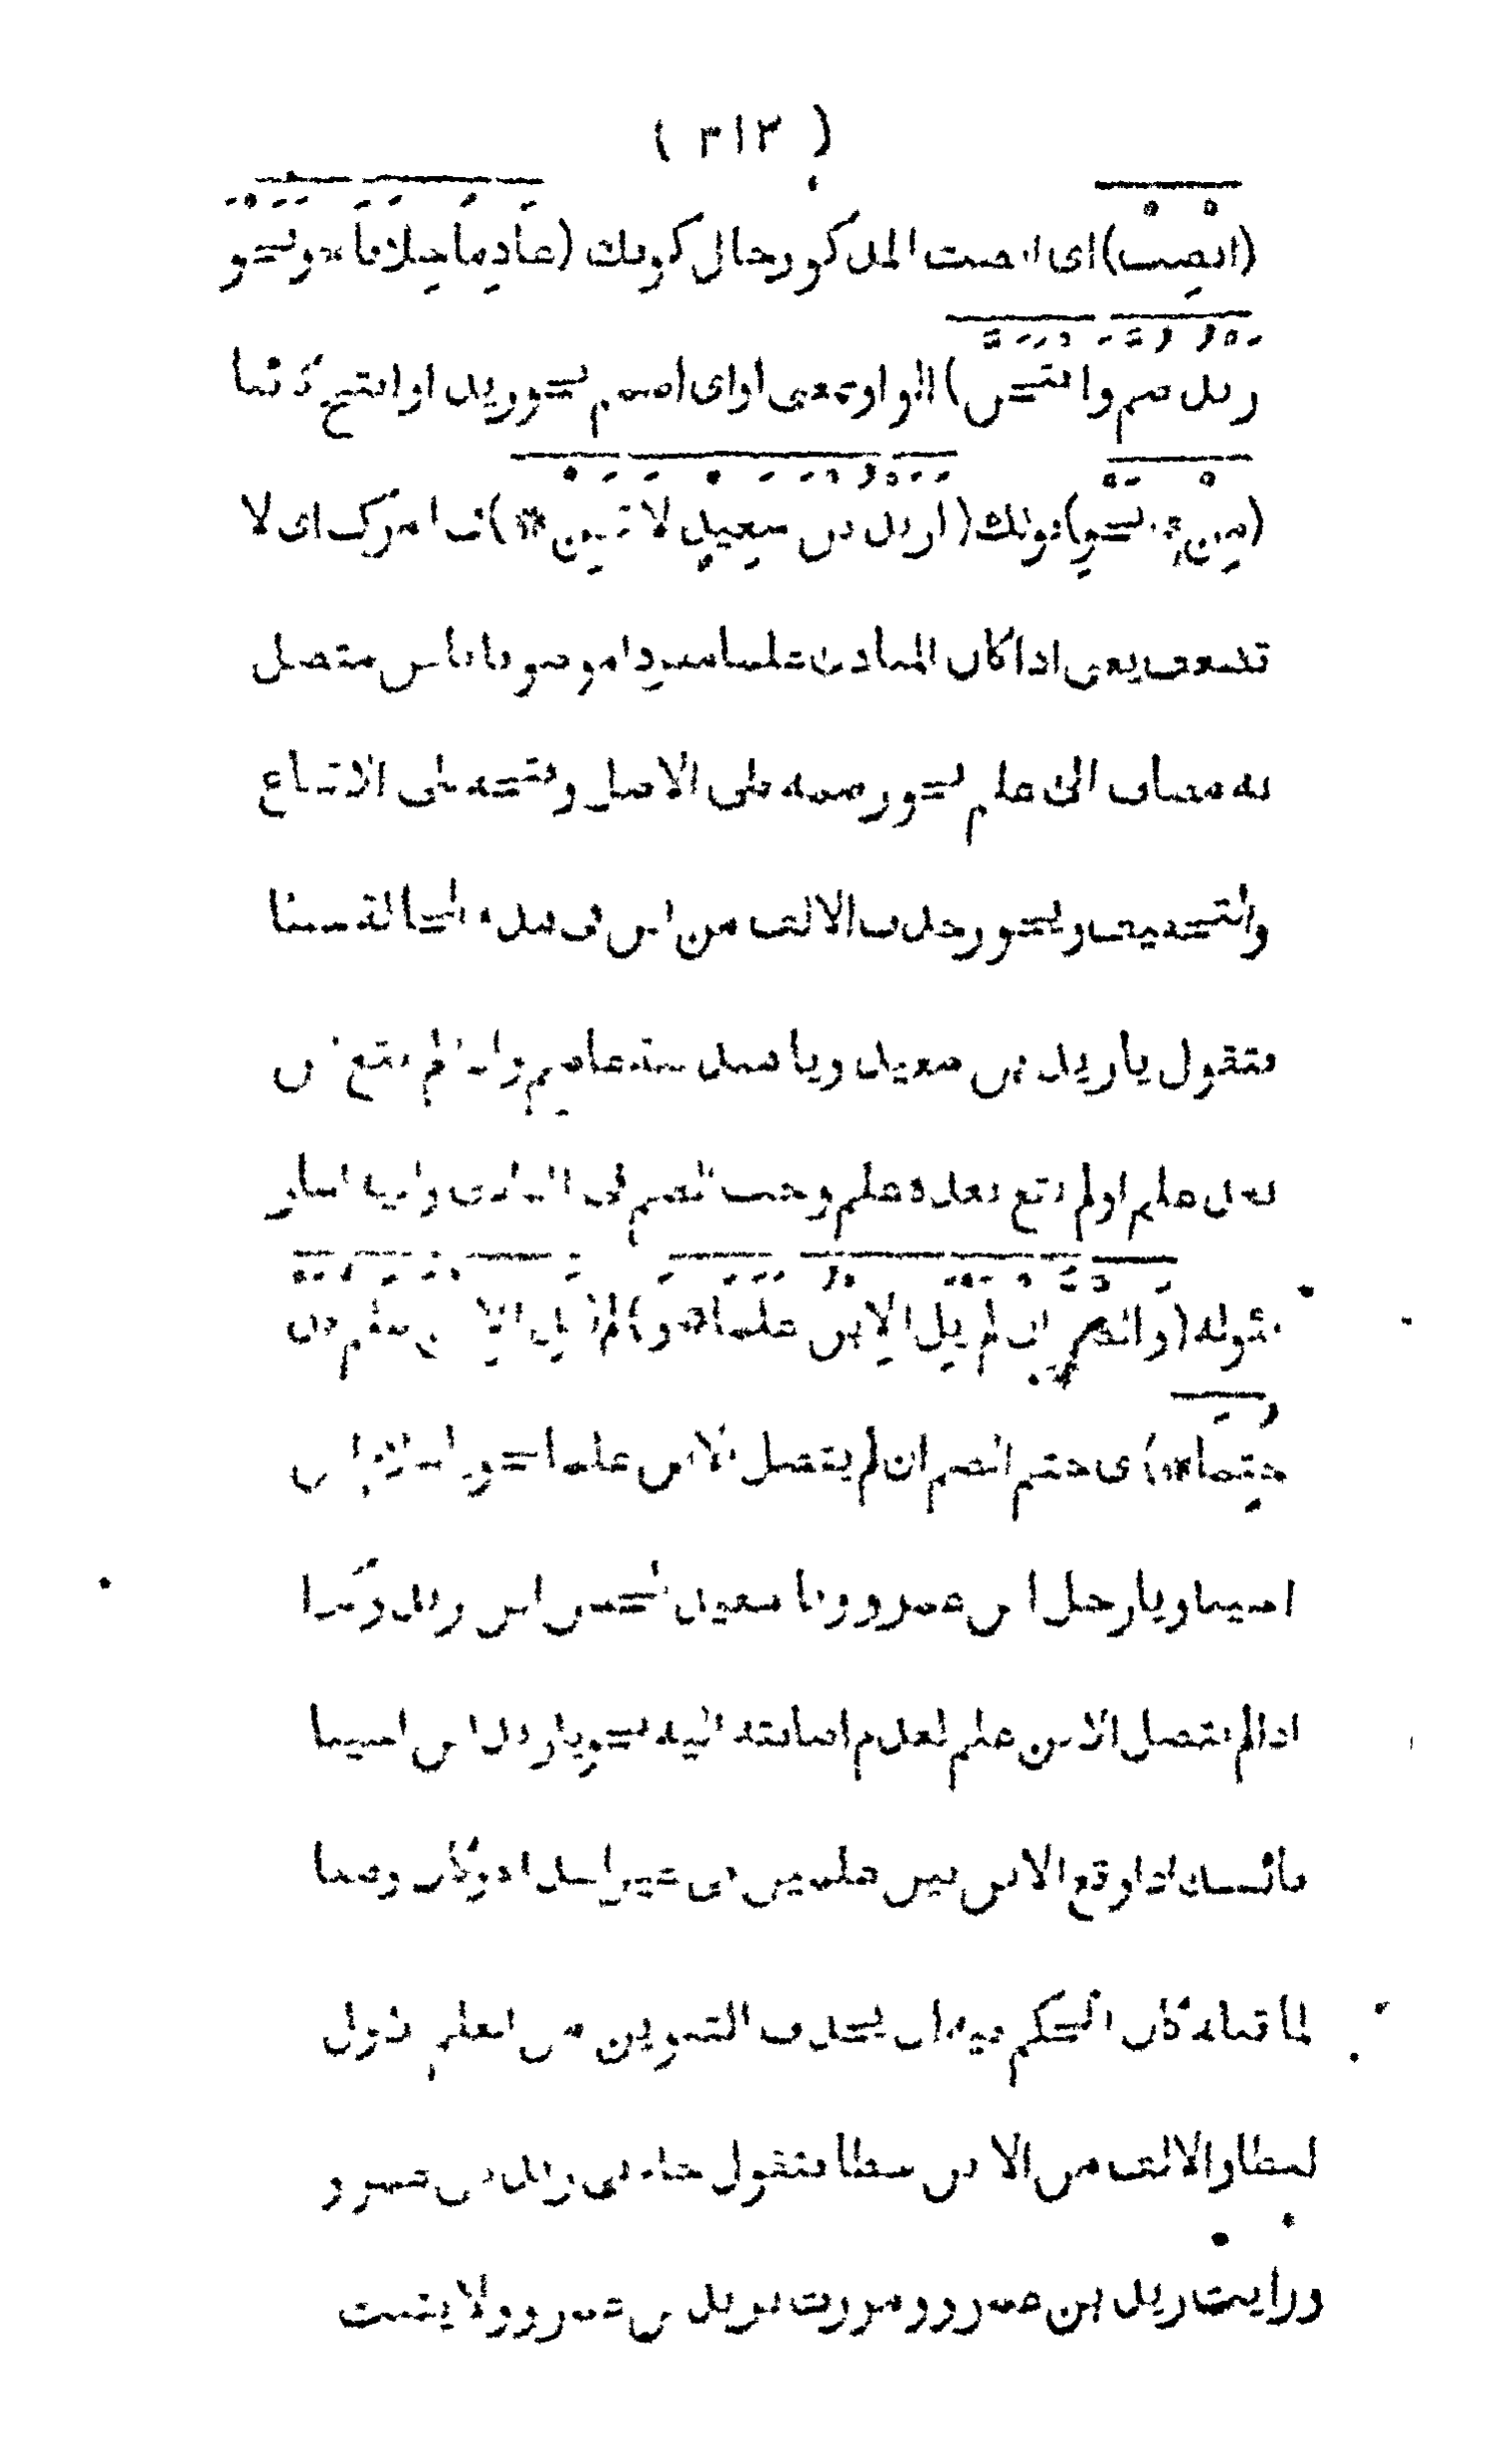 ( ٣١٣ )
(انْصِبْ) اى انصب المذكور حال كونك (عَادِمًا خِلَافَا * و نحو
زيد ضم وافتحن) الواو بمعنى او اى اضمم نحو زيد او افتح كائنا
(مِنْ نحوِ) قولك (ازيد بن سَعِيدٍ لَا تَهِنْ *) امرك اى لا
تضعف يعنى اذا كان المنادى علما مفردا موصوفا بابن متصل
به مضاف الى علم نحو ضمه على الاصل وفتحه على الاتباع
والتخفيف ويجوز حذف الالف من ابن فى هذه الحالة
فتقول يا زيد بن سعيد ويا هند بنة عاصم وان لم يقع ابن
بعد علم او لم يقع بعده علم وجب الضم فى المنادى واليه اشار
بقوله (والضم ان لم يل الابن عَلَمَا * و) لم يل الابن علم من
حتما *) اى حتم الضم ان لم يتصل الابن علما نحو
اخينا ويا رجل ابن عمرو ويا سعيد المحسن ابن زيد وكذا
اذا لم يتصل الابن علم لعدم اضافته اليه نحو يا زيد ابن اخينا
اذا وقع الابن بين علمين فى غير النداء وكان وصفا
لما قبله كان الحكم فيه ان يحذف التنوين من العلم الاول
لفظا والالف من الابن خطا فتقول جاءنى زيد بن عمرو
ورايت زيد بن عمرو ومررت بزيد بن عمرو ولا يثبت